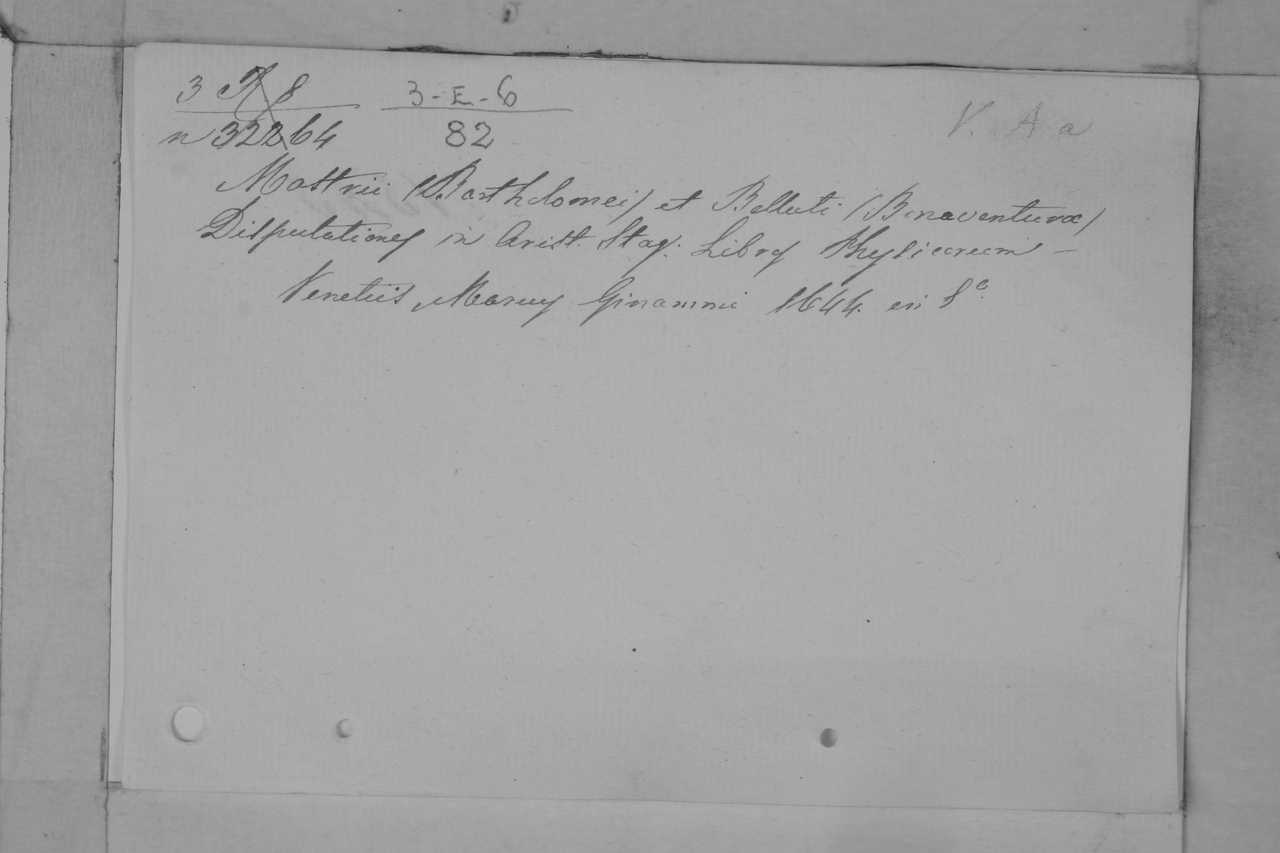 3 A 8 3-E-6 V. A a
n 32264 82
Mastrii (Bartholomei) et Belluti (Bonaventuræ)
Disputationes in Arist. Stag. Libros Physicorum —
Venetiis, Marcus Ginammi 1644. en 8º.